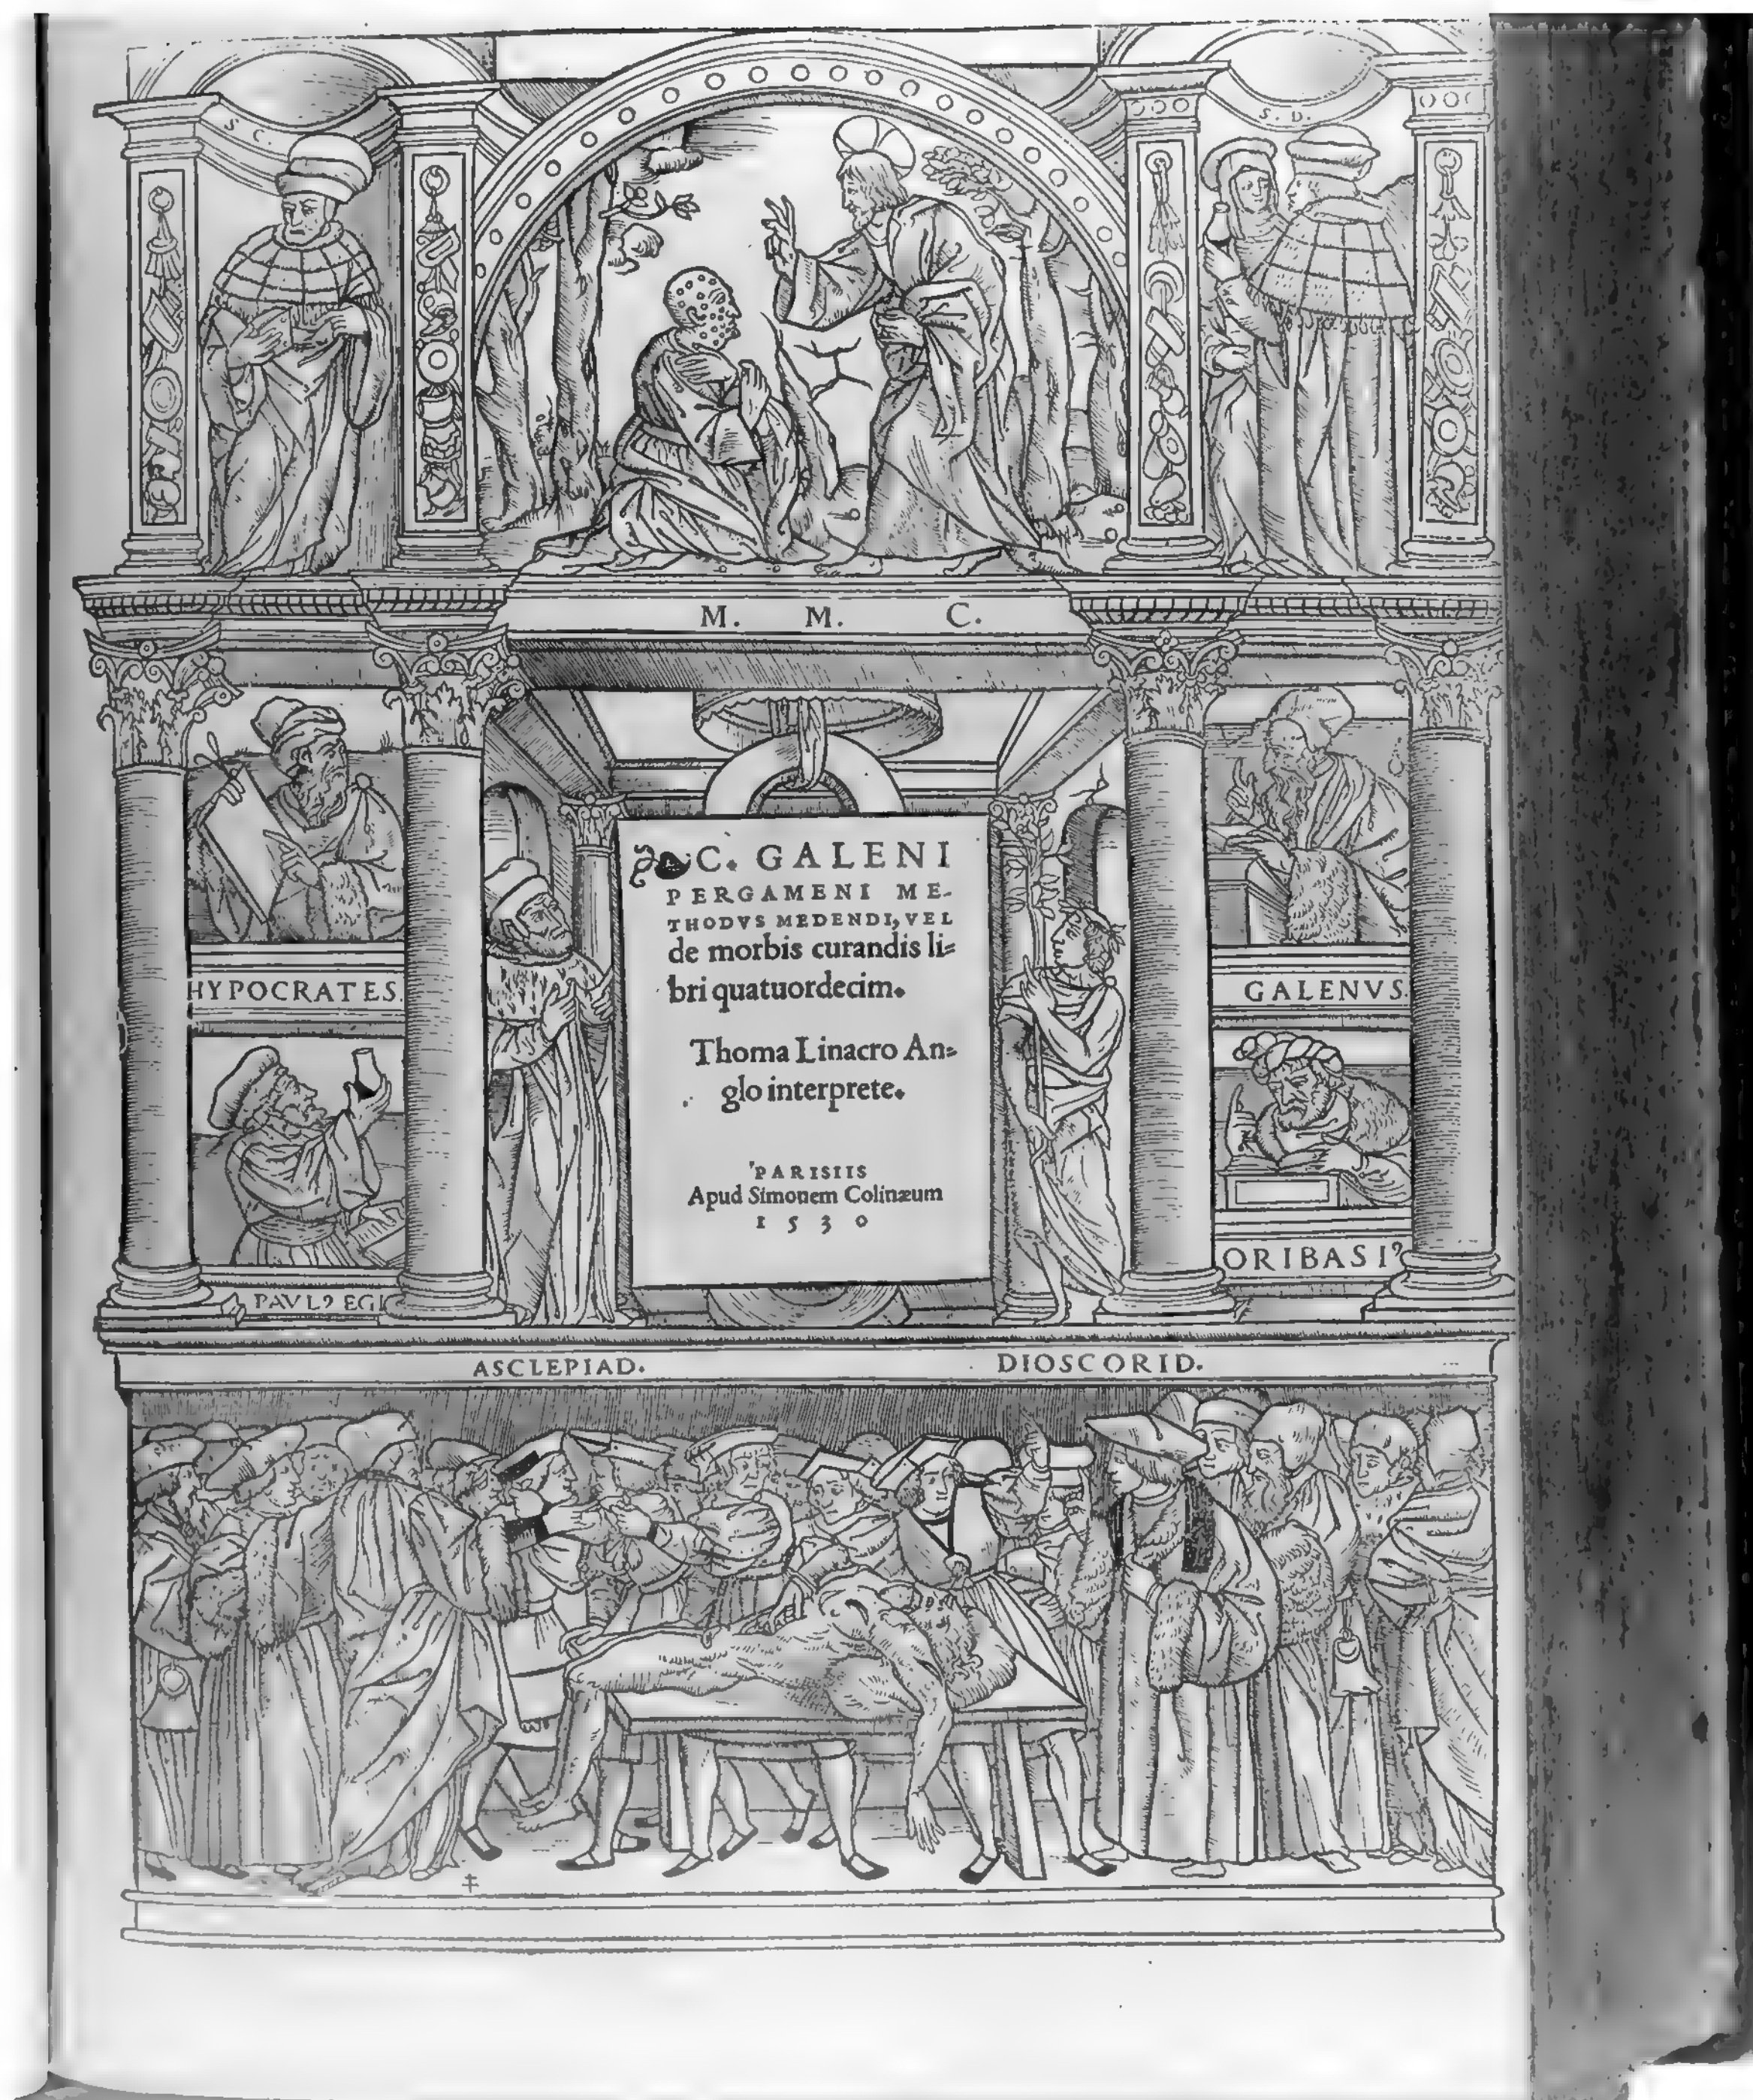 S C
S. D.
M. M. C.
C. GALENI
PERGAMENI ME-
THODVS MEDENDI, VEL
de morbis curandis li-
bri quatuordecim.
Thoma Linacro An-
glo interprete.
PARISIIS
Apud Simonem Colinæum
1530
HYPOCRATES.
GALENVS.
PAVLꝰ EGI
ORIBASIꝰ
ASCLEPIAD.
DIOSCORID.